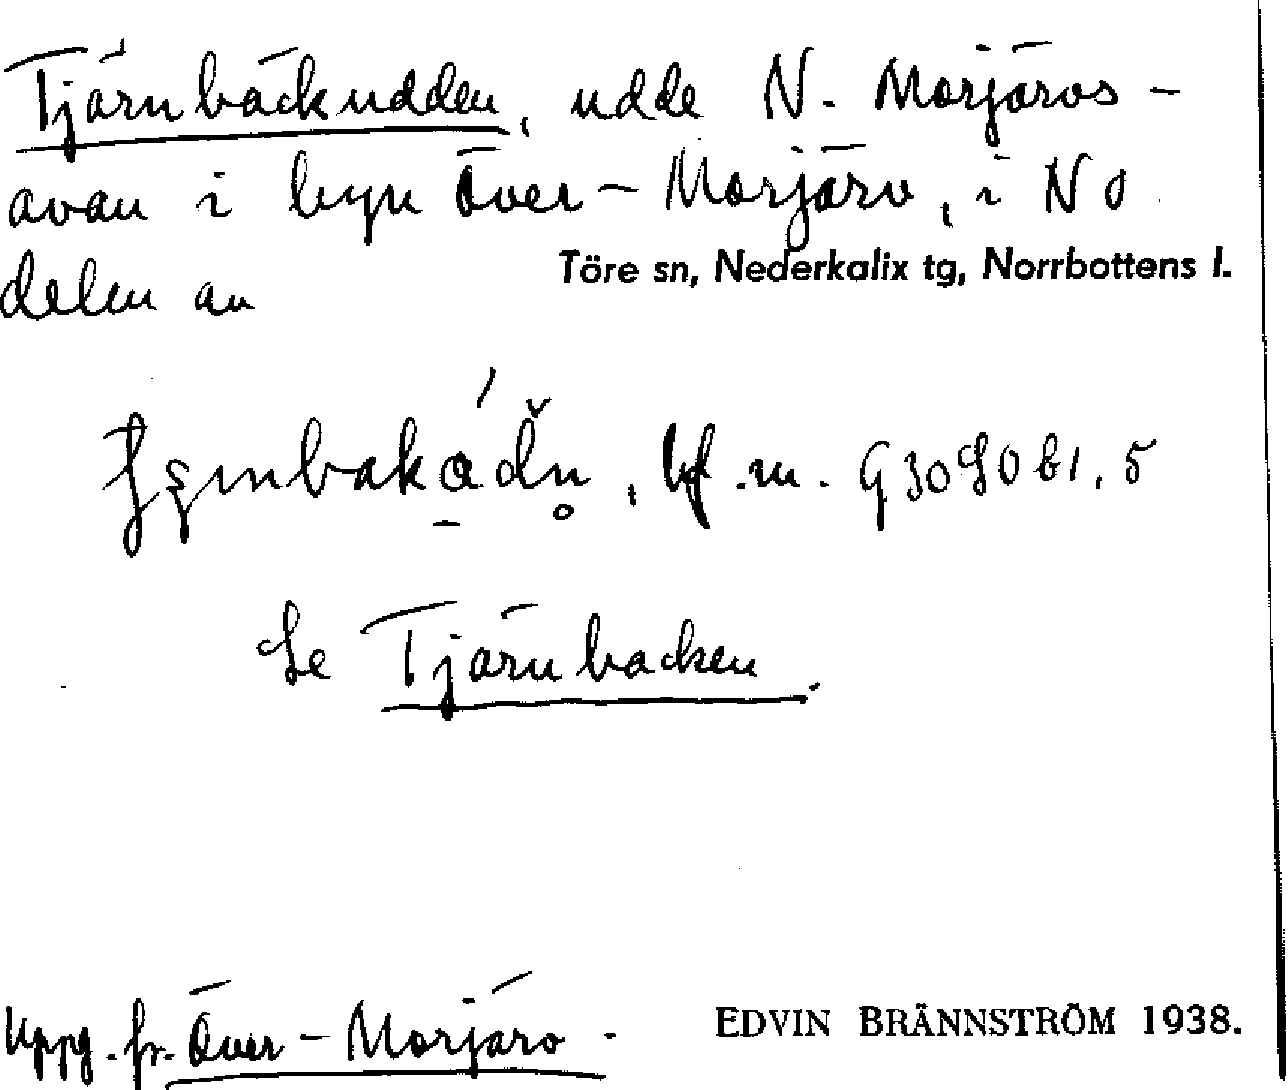 Tjärnbäckudden, udde N. Morjärvs-
avan i byn Över-Morjärv, i NO
delen av
Töre sn, Nederkalix tg, Norrbottens l.
bf. m.
Se Tjärnbacken.
Uppg. fr. Över-Morjärv.
EDVIN BRÄNNSTRÖM 1938.